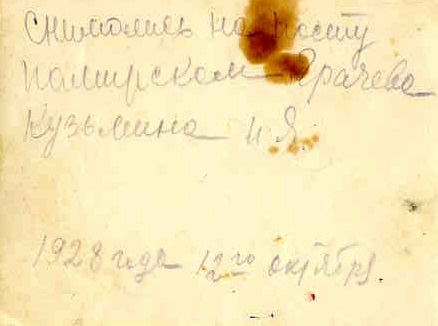 Снимались на посту
Памирском Грачева
Кузьмина и Я.
1928 года 12го октября.